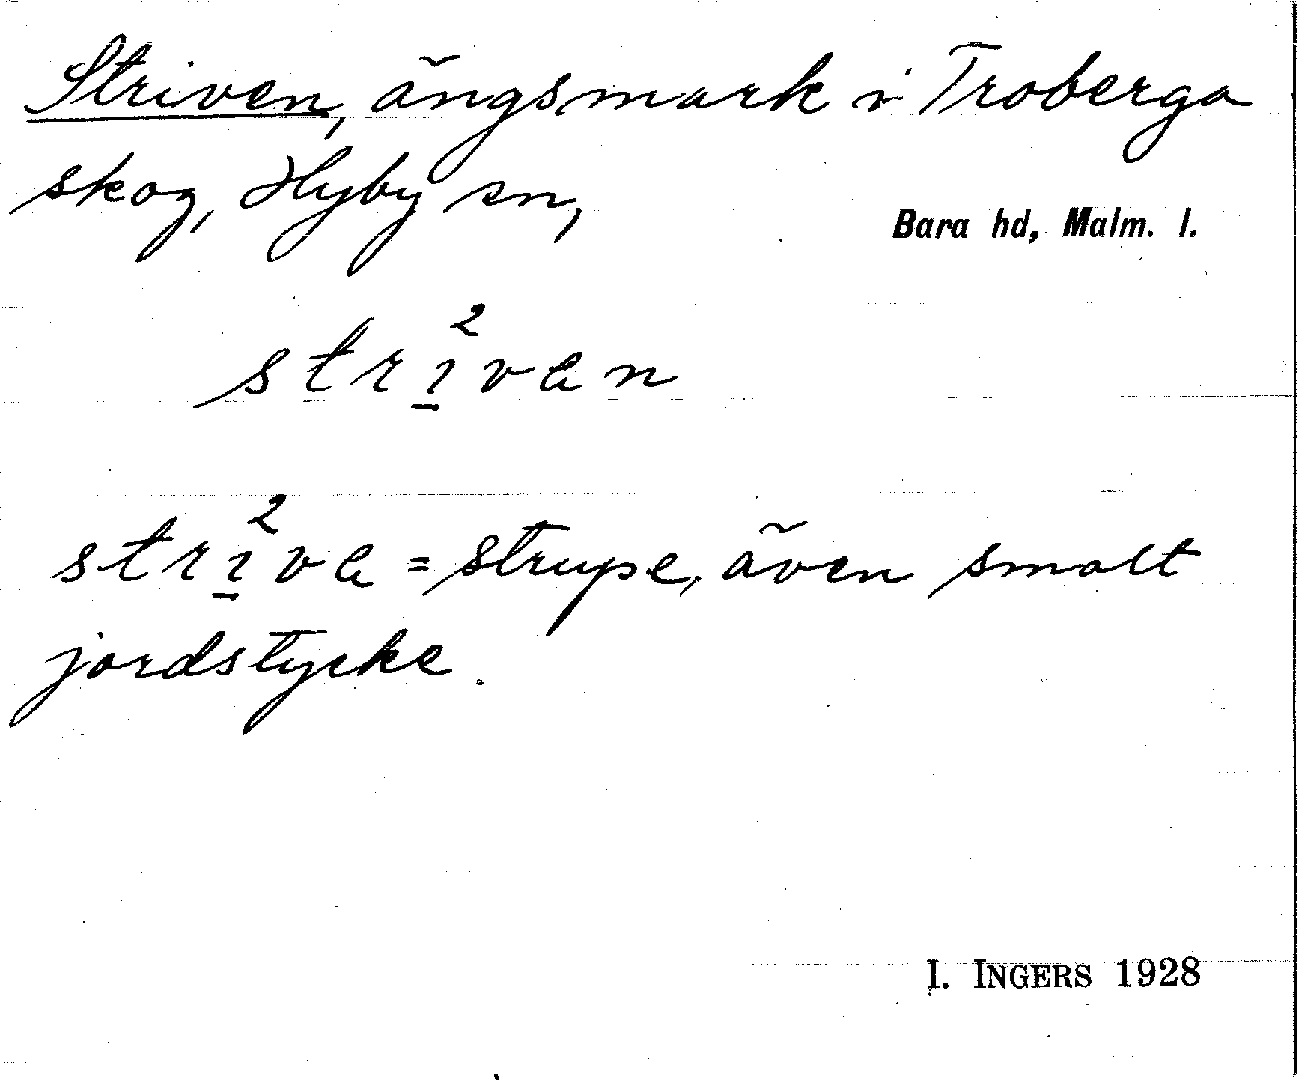 Striven, ängsmark i Troberga
skog, Hyby sn,
Bara hd, Malm. l.
strı̱²van
strı̱²va = strupe, även smalt
jordstycke.
I. INGERS 1928